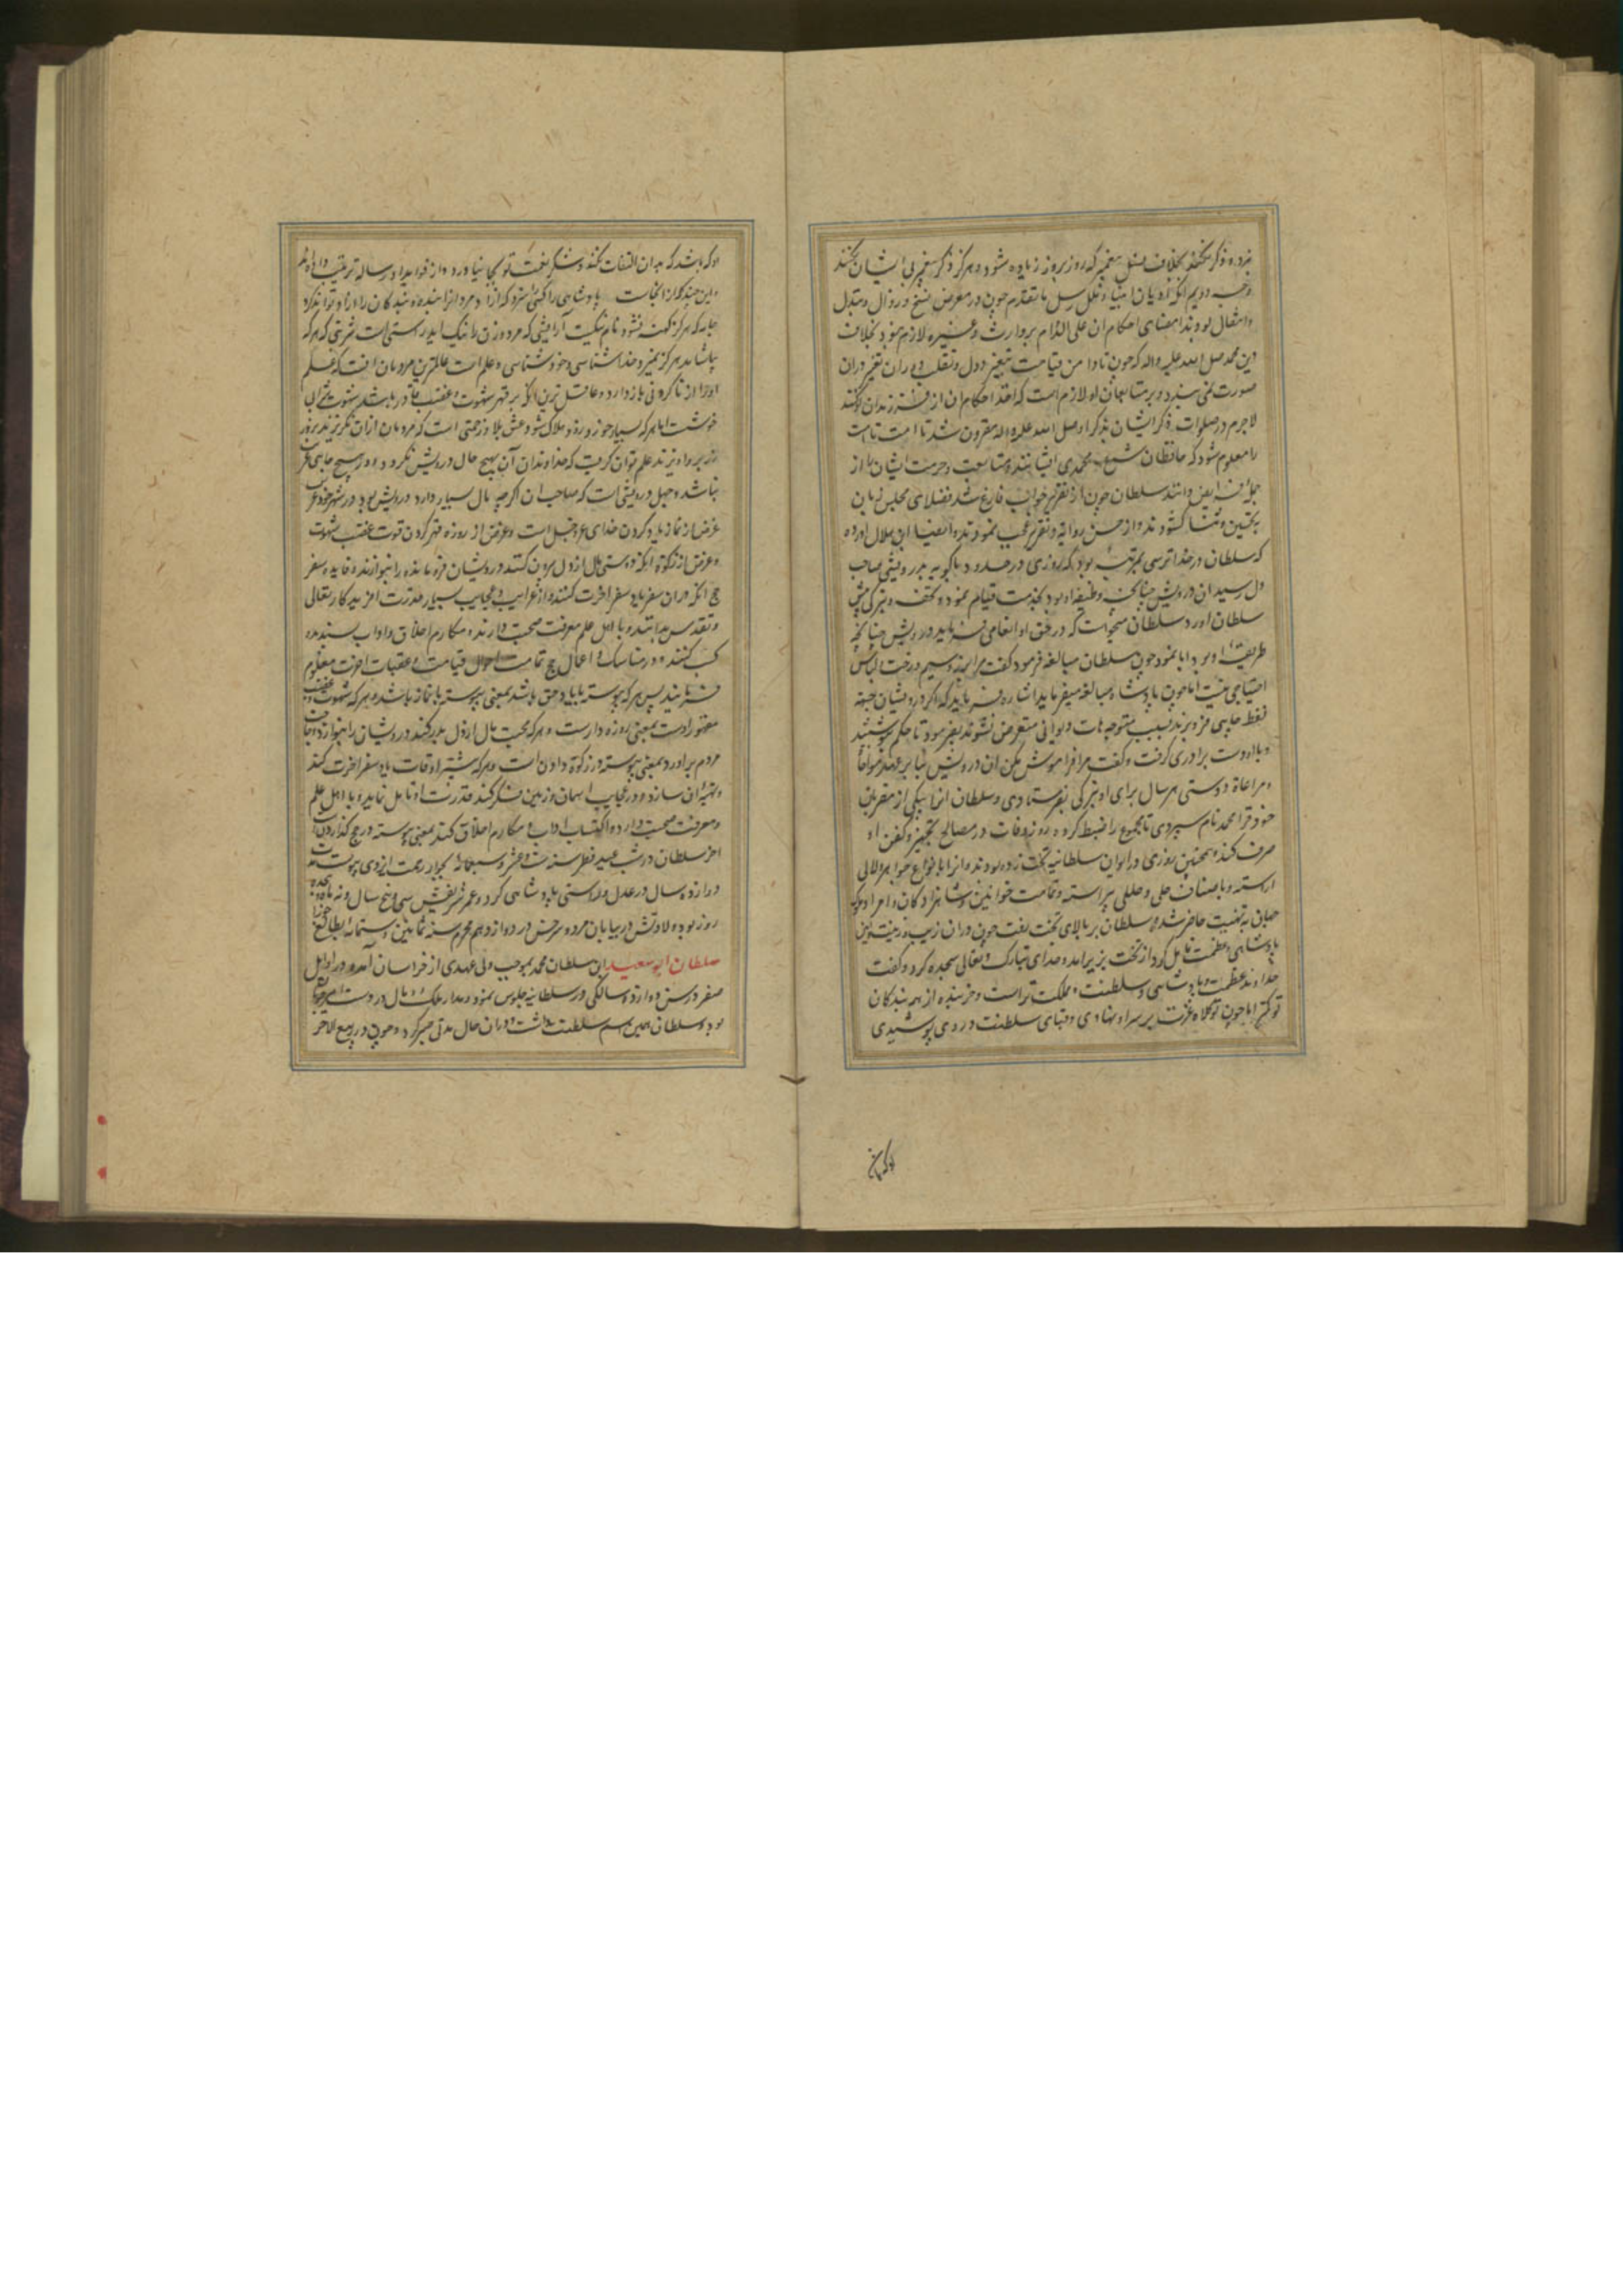 نبرده ذکر نکنند بخلاف نسل پیغمبر که روز بروز زیاده شود و هرگز ذکر پیغمبر بی ایشان نکنند
وجه دویم آنکه ادیان انبیا و ملل رسل ما تقدم چون در معرض نسخ و زوال و تبدل
و انتقال بودند امضای احکام آن علی الدوام بر وارث و غیره لازم نبود بخلاف
دین محمد صلی الله علیه واله که چون تا دامن قیامت تغییر دول و تقلب دوران تغیر در آن
صورت نمی بندد و بر متابعان او لازم است که اخذ احکام آن از فرزندان او کنند
لاجرم در صلوات ذکر ایشان بذکر او صلی الله علیه واله مقرون شد تا امت
را معلوم شود که حافظان شرع محمدی ایشانند و متابعت و حرمت ایشان را از
جمله فرایض دانند سلطان چون از تقریر جواب فارغ شد فضلای مجلس زبان
بتحسین و ثنا گشودند و از حسن روایة و تقریر عجب نمودند و ایضا ابن هلال آورده
که سلطان در خداترسی بمرتبه بود که روزی در حدود باکویه بدرویشی صاحب
دل رسید آن درویش چنانچه وظیفه او بود بخدمت قیام نمود و تحف و تبرکی پیش
سلطان اورد سلطان میخواست که در حق او انعامی فرماید درویش چنانچه
طریقه او بود ابا نمود چون سلطان مبالغه فرمود گفت مرا بزر و سیم و رخت و لباس
احتیاجی نیست اما چون پادشاه مبالغه میفرماید اشاره فرماید که اگر درویشان جهة
نفط حلبی فروبرند بسبب متوجهات دیوانی متعرض نشوند بفرمود تا حکم نوشتند
و با او دست برادری گرفت و گفت مرا فراموش مکن آن درویش بنابر عهد مواخاة
و مراعاة دوستی هر سال برای او تبرکی بفرستادی و سلطان انرا بیکی از مقربان
خود قرا محمد نام سپردی تا مجموع را ضبط کرده روز وفات در مصالح تجهیز و کفن او
صرف کند و همچنین روزی در ایوان سلطانیه تخت زده بودند و انرا بانواع جواهر و لالی
اراسته و باصناف حلی و حلل پیراسته و تمامت خواتین و شاهزادگان و امرا و ملوک
جهان به تهنیت حاضر شده سلطان بر بالای تخت رفت چون در ان زیب و زینت و آیین
پادشاهی و عظمت تامل کرد از تخت بزیر آمد و خدای تبارک و تعالی سجده کرد و گفت
خداوندا عظمت و پادشاهی و سلطنت و مملکت تراست و خربنده از همه بندگان
تو کمتر اما چون تو کلاه عزت بر سر او نهادی و قبای سلطنت در وی پوشیدی
او که باشد که بدان التفات نکند و شکر نعمت تو بجا نیاورد و از فواید او رساله ترتیب داده اند
و این چند کلمه از انجاست پادشاهی را کسی سزد که آزاد مردانرا بنده و بندگان را آزاد تواند کرد
جامه که هرگز کهنه نشود نام نیکست آرایشی که مرد و زن را نیک آید راستی است شربتی که هر که
بیاشامد هرگز نمیرد خداشناسی و خودشناسی و علم است عالمترین مردمان آنست که علم
او را از ناکردنی باز دارد و عاقل ترین آنکه بر قهر شهوت و غضب قادر باشد شهوت شرابی
خوشست اما هر که بسیار خورد زود هلاک شود عشق بلا و زحمتی است که مردمان ازان نگریزند بزور
زر بر او ریزند علم توان گفت که خداوندان آن بهیچ حال درویش نگردد و در هیچ جایی غریب
نباشد و جهل درویشی است که صاحب ان اگر چه مال بسیار دارد درویش بود و در شهر خود غریب
غرض از نماز یاد کردن خدای عز و جل است و غرض از روزه قهر کردن قوت غضب و شهوت
و غرض از زکوة آنکه دوستی مال از دل بیرون کنند و درویشان فرومانده را بنوازند و فایده سفر
حج آنکه در ان سفر یاد سفر اخرت کنند و از غرایب و عجایب بسیار قدرت آفریدگار تعالی
و تقدس بدانند و با اهل علم و معرفت صحبت دارند و مکارم اخلاق و اداب پسندیده
کسب کنند و در مناسک و اعمال حج تمامت احوال قیامت و عقبات اخرت معلوم
فرمایند پس هر که پیوسته با یاد حق باشد بمعنی پیوسته با نماز باشد و هر که شهوت و غضب
مقهور اوست بمعنی روزه دارست و هر که محبت مال از دل بدر کند و درویشان را بنوازد و حاجات
مردم براورد بمعنی پیوسته در زکوة دادن است و هر که بیشتر اوقات یاد سفر آخرت کند
و تهیه آن سازد و در عجایب اسمان و زمین فکر کند و قدرت او تامل نماید و با اهل علم
و معرفت صحبت دارد و اکتساب اداب و مکارم اخلاق کند بمعنی پیوسته در حج گذاردن است
اخر سلطان در شب عید فطر سنه ست و عشر و سبعمائه بجوار رحمت ایزدی پیوست مدت
دوازده سال در عدل و راستی پادشاهی کرد و عمر شریفش سی و پنج سال و نه ماه و هجده
روز بود ولادتش در بیابان مرو و سرخس در دوازدهم محرم سنه ثمانین و ستمائه بطالع جوزا
سلطان ابو سعید ابن سلطان محمد بموجب ولی عهدی از خراسان آمده در اوایل
صفر در سن دوازده سالگی در سلطانیه جلوس نمود و مدار ملک و مال در دست امیر چوپان
بود و سلطان همین اسم سلطنت داشت و در ان حال مدتی صبر کرد و چون در ربیع الاخر